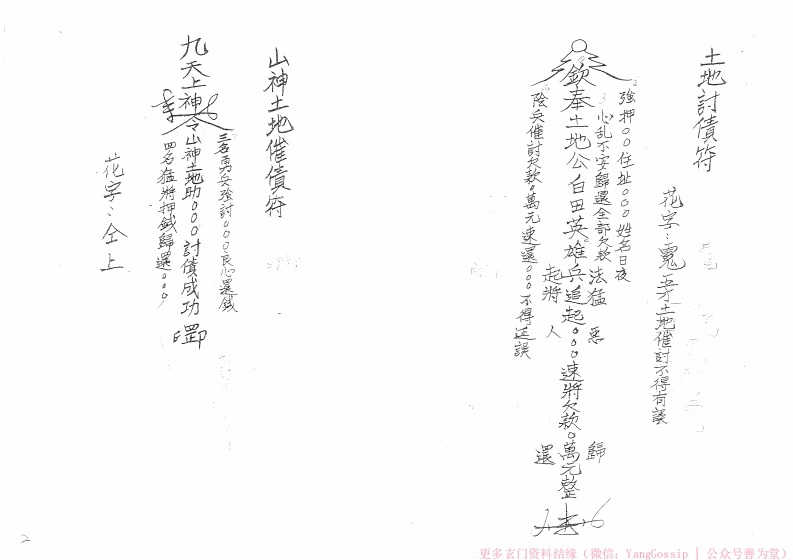 土地討債符
花字：䰠 吾奉土地催討不得有誤
強押○○住址○○○姓名日夜
心乱不安歸還全部欠款
法猛 惡
歸
欽奉土地公白田英雄兵追起○○○速將欠款○萬元整
起將 人
還
陰兵催討欠款○萬元速還○○○不得迋誤
山神土地催債符
三名勇兵強討○○○良心還錢
九天上神令山神土地助○○○討債成功 罡印
四名猛將押錢歸還○○○
花字：仝上
2
更多玄门资料结缘（微信：YangGossip | 公众号善为堂）